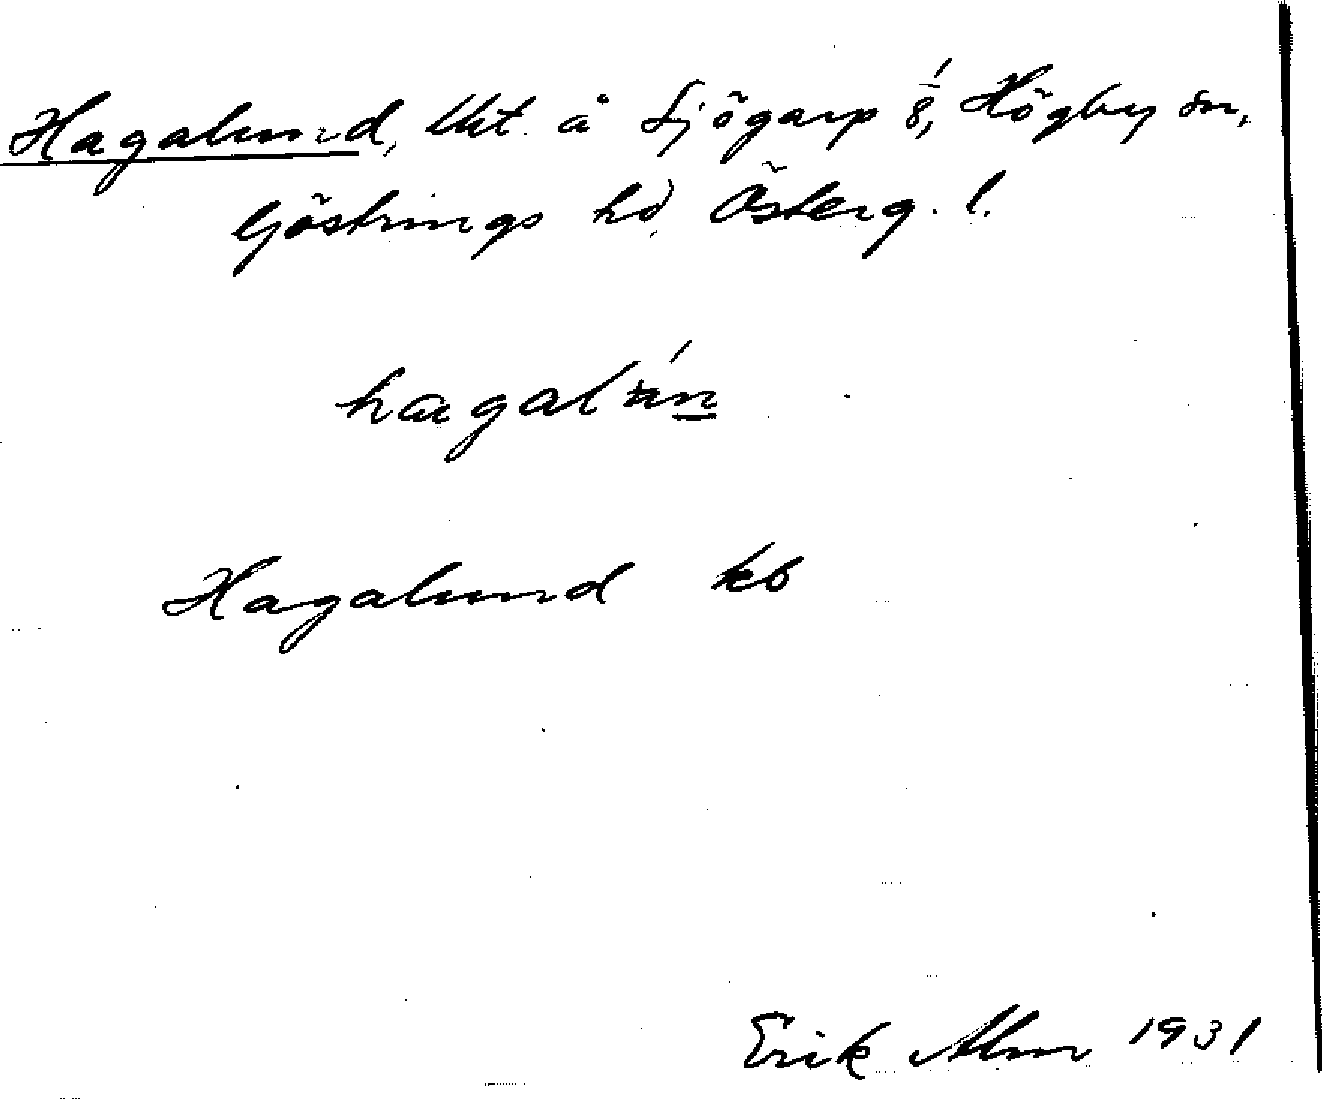 Hagalund, lht. å Sjögarp 1/8, Högby sn,
Göstrings hd, Österg. l.
Hagalund kb
Erik Alm 1931